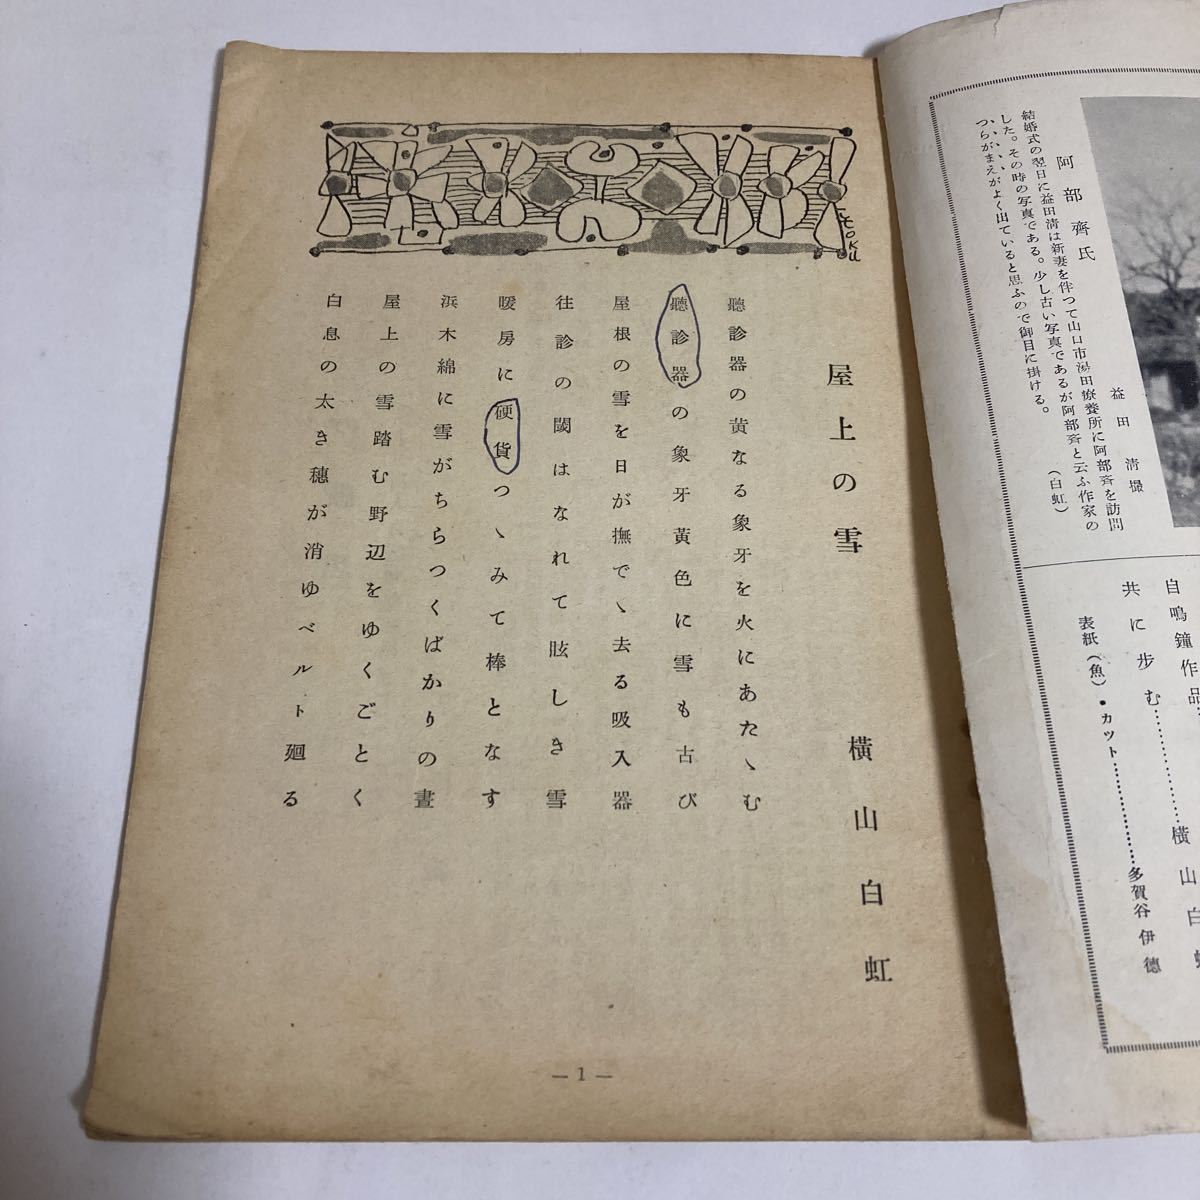 結婚式の翌日に益田清は新妻を伴つて山口市湯田療養所に阿部齊を訪問
した。その時の写真である。少し古い写真であるが阿部齊と云ふ作家の
つらがまえがよく出ていると思ふので御目に掛ける。
(白虹)
阿部齊氏
益田清撮
自鳴鐘作品
横山白虹
共に歩む
表紙(魚)•カット……………多賀谷伊德
屋上の雪
横山白虹
聽診器の黄なる象牙を火にあたゝむ
聽診器の象牙黃色に雪も古び
屋根の雪を日が撫でゝ去る吸入器
往診の閾はなれて眩しき雪
暖房に硬貨つゝみて棒となす
浜木綿に雪がちらつくばかりの晝
屋上の雪踏む野辺をゆくごとく
白息の太き穗が消ゆベルト廻る
ITOKU
— 1 —